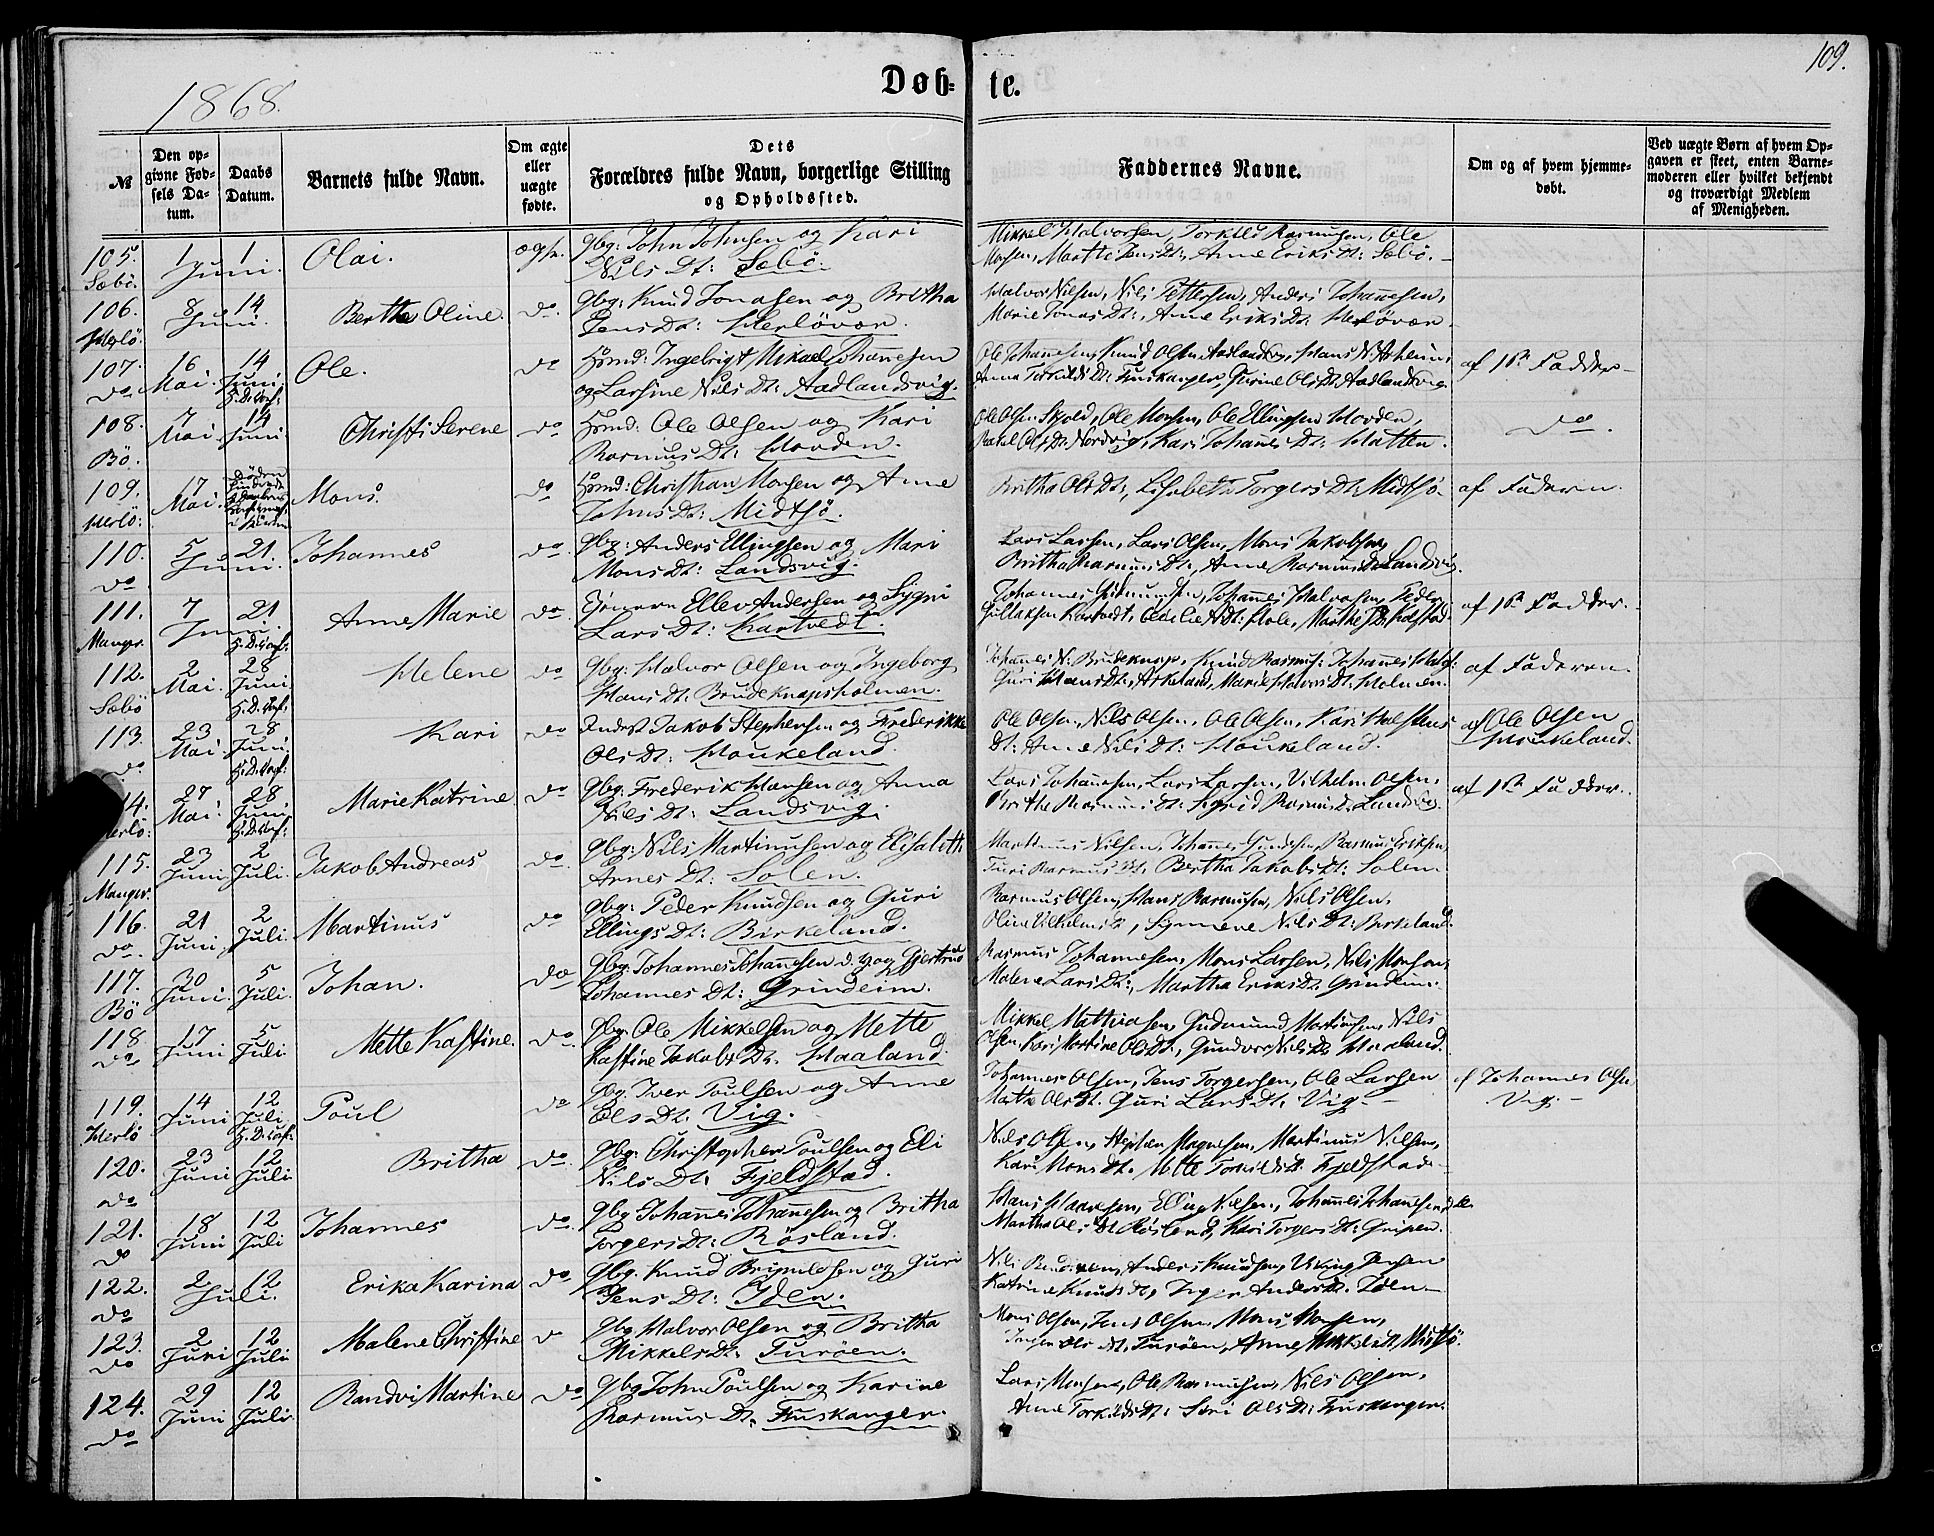 109.
1868.
Døb-te.
№
Den op-
givne Fød-
sels Da-
tum.
Daabs
Datum.
Barnets fulde Navn.
Om ægte
eller
uægte
fødte.
Dets
Forældres fulde Navn, borgerlige Stilling
og Opholdssted.
Faddernes Navne.
Om og af hvem hjemme-
døbt.
Ved uægte Børn af hvem Op-
gaven er skeet, enten Barne-
moderen eller hvilket bekjendt
og troværdigt Medlem
af Menigheden.
105. 1 1 Olai. ægte. Gbg: John Johnsen og Kari Mikkel Halvorsen, Torkild Rasmusen, Ole
Sæbø. Juni. Nils Dt: Sæbø. Monsen, Marthe Jens Dt:, Anne Eriks Dt: Sæbø.
106. 8 14 Berthe Oline. do. Gbg: Knud Jonasen og Britha Halvor Nilsen, Nils Pettersen, Anders Johannesen,
Herlö. Juni. Jens Dt: Herlövær. Marie Jonas Dt:, Anne Eriks Dt: Herlövær.
107. 16 14 Ole. do Hsmd: Ingebrigt Mikael Johannesen Ole Johannesen, Knud Olsen Aadlandsvig, Hans N. Askeim, af 1ste Fadder
do Mai. Juni og Larsine Nils Dt: Aadlandsvig. Anna Torkilds Dt: Fuskanger, Gurine Ols Dt: Aadlandsvig
108. 7 14 Christi Serene do Hsmd: Ole Olsen og Kari Ole Olsen Skjold, Ole Monsen, Ole Ellingsen Hovden, do.
Bö. Mai Juni Rasmus Dt: Hovden. Rakel Ols Dt: Nordvig, Kari Johannes Dt: Hatten.
109. 17 Mons. do Hsmd: Christian Monsen og Anne Britha Ols Dt:, Lisabeth Torgers Dt: Midtsö. af Faderen.
Herlö: Mai. Johns Dt: Midtsö.
110. 5 21. Johannes do. Gbg: Anders Ellingsen og Mari Lars Larsen, Lars Olsen, Mons Jakobsen,
do Juni. Mons Dt: Landsvig. Britha Rasmus Dt:, Anne Rasmus Dt: Landsvig.
111. 7 21. Anne Marie do Ellev Andersen og Sygni Johannes Johannes Halvorsen, Peder af 1ste Fadder.
Manger. Juni. Lars Dt: Kartvedt. Gullaksen Kartvedt,
112. 2 28 Helene do Gbg: Halvor Olsen og Ingeborg Johannes N. Brudeknap, Knud Rasmus: af Faderen
Sæbö Mai. Juni Hans Dt: Brudeknapsholmen. Guri Hans Dt:, Askeland, Marie Halvors Dt: Holmen.
113. 23 28 Kari do Inderst Jakob Stephensen og Frederikke Ole Olsen, Nils Olsen, Ole Olsen, Kari Halstens af Ole Olsen
do Mai. Juni Ols Dt: Houkeland. Dt: Anne Nils Dt: Houkeland. Houkeland.
114. 27 28 Marie Katrine do Gbg. Frederik Hansen og Anna Lars Johannesen, Lars Larsen, Vilhelm Olsen, af 1ste Fadder.
Herlö: Mai. Juni Nils Dt: Landsvig. Brithe Rasmus Dt: Sigrid Rasmus Dt: Landsvig.
115. 23 2 Jakob Andreas do. Gbg: Nils Martinusen og Elisabeth Martinus Nilsen, Johannes Gundersen, Rasmus Eriksen,
Manger. Juni Juli. Arnes Dt: Solem. Turi Rasmus Dt, Bertha Jakobs Dt: Solem
116. 21 2 Martinus do Gbg: Peder Knudsen og Guri Rasmus Olsen, Hans Rasmusen, Nils Olsen,
do. Juni. Juli. Ellings Dt: Birkeland. Oline Vilhelms Dt, Synneve Nils Dt: Birkeland.
117. 30 5 Johan. do Gbg: Johannes Johannesen d. y. og Gjertrud Rasmus Johannesen, Mons Larsen, Nils Monsen,
Bö Juni. Juli. Johannes Dt: Grindeim. Malene Lars Dt:, Martha Eriks Dt. Grindeim.
118. 17 5 Mette Kastine. do Gbg. Ole Mikkelsen og Mette Mikkel Mathiasen, Gudmund Martinsen, Nils
do Juni Juli Kastine Jakobs Dt. Haaland. Olsen, Kari Martine Ols Dt., Gunvor Nils Dt. Haaland.
119. 14 12 Poul do Gbg. Iver Poulsen og Anne Johannes Olsen, Jens Torgersen, Ole Larsen af Johannes Olsen
Herlö Juni Juli Ols Dt: Vig. Marthe Ols Dt. Guri Lars Dt: Vig. Vig.
120. 23 12 Britha do. Gbg. Christopher Poulsen og Eli Nils Olsen, Stephen Magnesen, Martinus Nilsen,
do Juni Juli Nils Dt. Fjeldstad. Kari Mons Dt. Mette Torkilds Dt. Fjeldstad.
121. 18 12 Johannes do. Gbg Johannes Johannesen og Britha Hans Hansen, Elling Nilsen, Johannes Johannesen
do Juni Juli Torgers Dt: Rösland. Martha Ols Dt. Rösland, Kari Torgers Dt:
122. 2 12 Erika Karina do Gbg. Knud Brynildsen og Guri Nils Anders Knudsen, Jensen
do Juli. Jens Dt: Iden. Katrine Knuds Dt, Inger Anders Dt. Iden.
123. 2 12 Malene Christine do Gbg Halvor Olsen og Britha Mons Olsen, Jens Olsen, Mons Monsen,
do Juni Juli Mikkels Dt. Turöen. Inger Ols Dt. Turöen, Anne Mikkels Dt. Midtsö.
124. 29 12 Randvi Martine do Gbg John Poulsen og Karine Lars Monsen, Ole Rasmusen, Nils Olsen,
do Juni Juli. Rasmus Dt. Fuskanger. Anne Torkilds Dt: Siri Ols Dt: Fuskanger.